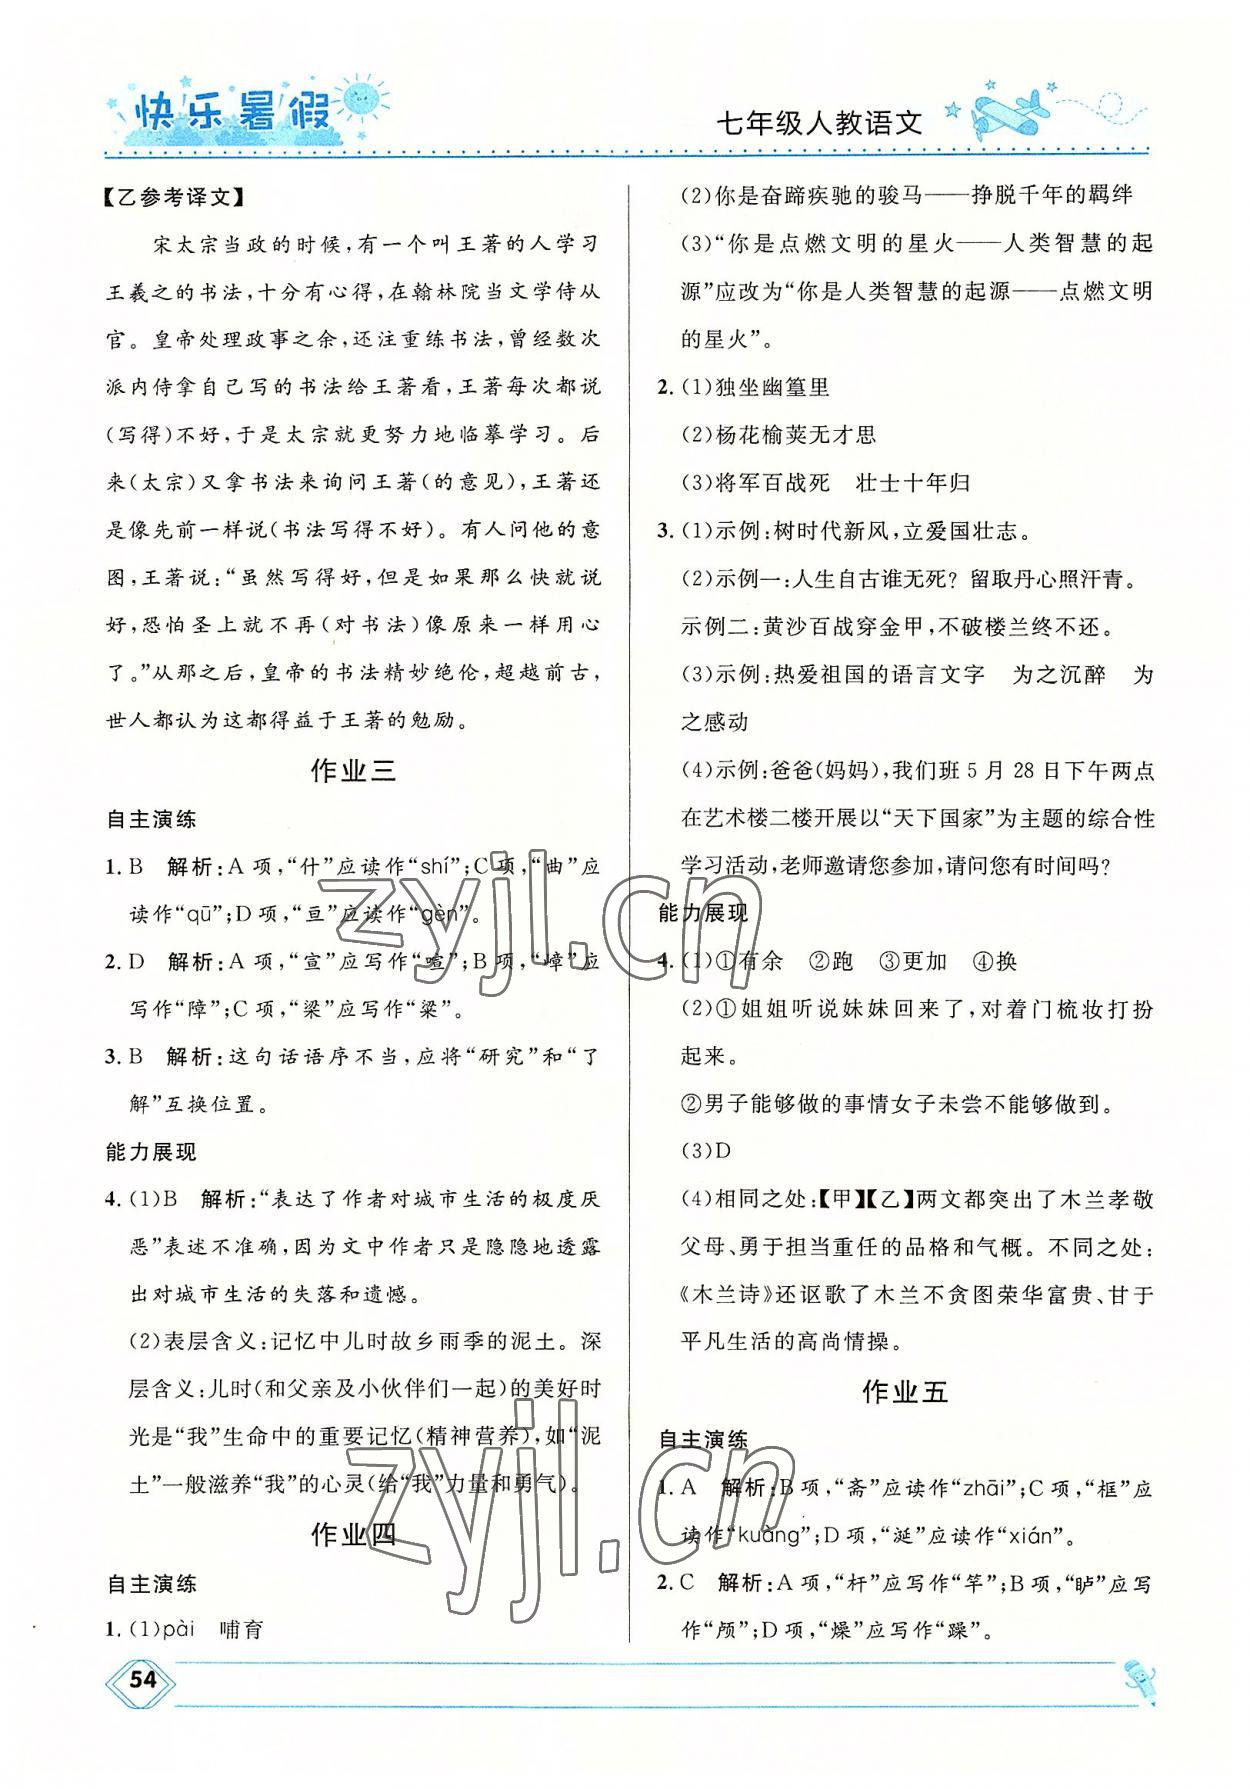 快乐暑假
七年级人教语文
【乙参考译文】
宋太宗当政的时候,有一个叫王著的人学习
王羲之的书法,十分有心得,在翰林院当文学侍从
官。皇帝处理政事之余,还注重练书法,曾经数次
派内侍拿自己写的书法给王著看,王著每次都说
(写得)不好,于是太宗就更努力地临摹学习。后
来(太宗)又拿书法来询问王著(的意见),王著还
是像先前一样说(书法写得不好)。有人问他的意
图,王著说:“虽然写得好,但是如果那么快就说
好,恐怕圣上就不再(对书法)像原来一样用心
了。”从那之后,皇帝的书法精妙绝伦,超越前古,
世人都认为这都得益于王著的勉励。
作业三
自主演练
1. B 解析:A 项,“什”应读作“shí”;C 项,“曲”应
读作“qū”;D 项,“亘”应读作“gèn”。
2. D 解析:A 项,“宣”应写作“喧”;B 项,“嶂”应
写作“障”;C 项,“梁”应写作“粱”。
3. B 解析:这句话语序不当,应将“研究”和“了
解”互换位置。
能力展现
4. (1)B 解析:“表达了作者对城市生活的极度厌
恶”表述不准确,因为文中作者只是隐隐地透露
出对城市生活的失落和遗憾。
(2)表层含义:记忆中儿时故乡雨季的泥土。深
层含义:儿时(和父亲及小伙伴们一起)的美好时
光是“我”生命中的重要记忆(精神营养),如“泥
土”一般滋养“我”的心灵(给“我”力量和勇气)。
作业四
自主演练
1. (1)pài 哺育
(2)你是奋蹄疾驰的骏马——挣脱千年的羁绊
(3)“你是点燃文明的星火——人类智慧的起
源”应改为“你是人类智慧的起源——点燃文明
的星火”。
2. (1)独坐幽篁里
(2)杨花榆荚无才思
(3)将军百战死 壮士十年归
3. (1)示例:树时代新风,立爱国壮志。
(2)示例一:人生自古谁无死?留取丹心照汗青。
示例二:黄沙百战穿金甲,不破楼兰终不还。
(3)示例:热爱祖国的语言文字 为之沉醉 为
之感动
(4)示例:爸爸(妈妈),我们班 5 月 28 日下午两点
在艺术楼二楼开展以“天下国家”为主题的综合性
学习活动,老师邀请您参加,请问您有时间吗?
能力展现
4. (1)①有余 ②跑 ③更加 ④换
(2)①姐姐听说妹妹回来了,对着门梳妆打扮
起来。
②男子能够做的事情女子未尝不能够做到。
(3)D
(4)相同之处:【甲】【乙】两文都突出了木兰孝敬
父母、勇于担当重任的品格和气概。不同之处:
《木兰诗》还讴歌了木兰不贪图荣华富贵、甘于
平凡生活的高尚情操。
作业五
自主演练
1. A 解析:B 项,“斋”应读作“zhāi”;C 项,“框”应
读作“kuàng”;D 项,“涎”应读作“xián”。
2. C 解析:A 项,“杆”应写作“竿”;B 项,“胪”应写
作“颅”;D 项,“燥”应写作“躁”。
54
zyjl.cn
zyjl.cn